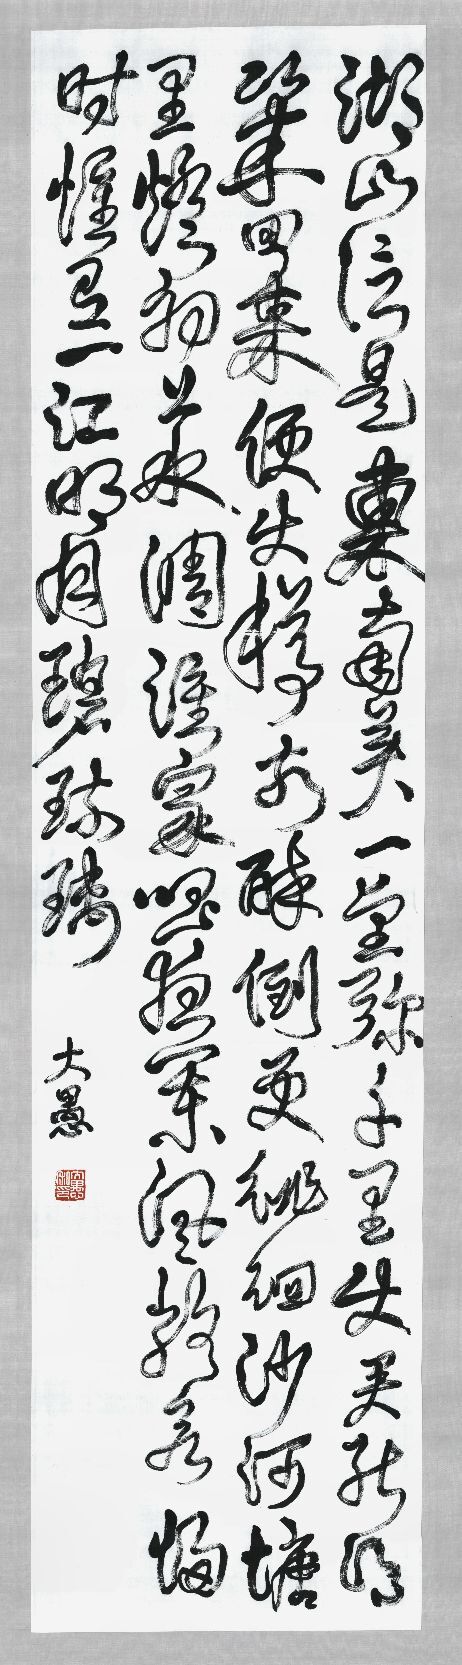 湖山信是東南美一望弥千里使君能得
幾回來便使樽前醉倒更徘徊沙河塘
里燈初上水調誰家唱夜闌風靜欲歸
时惟有一江明月碧琉璃
大愚